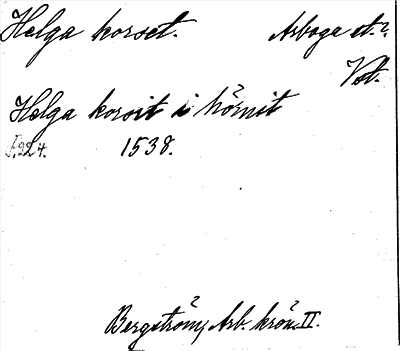 Helga korset. Arboga st.
Vst.
Helga korsit i hörnit
S. 224. 1538.
Bergström, Arb. krön. II.